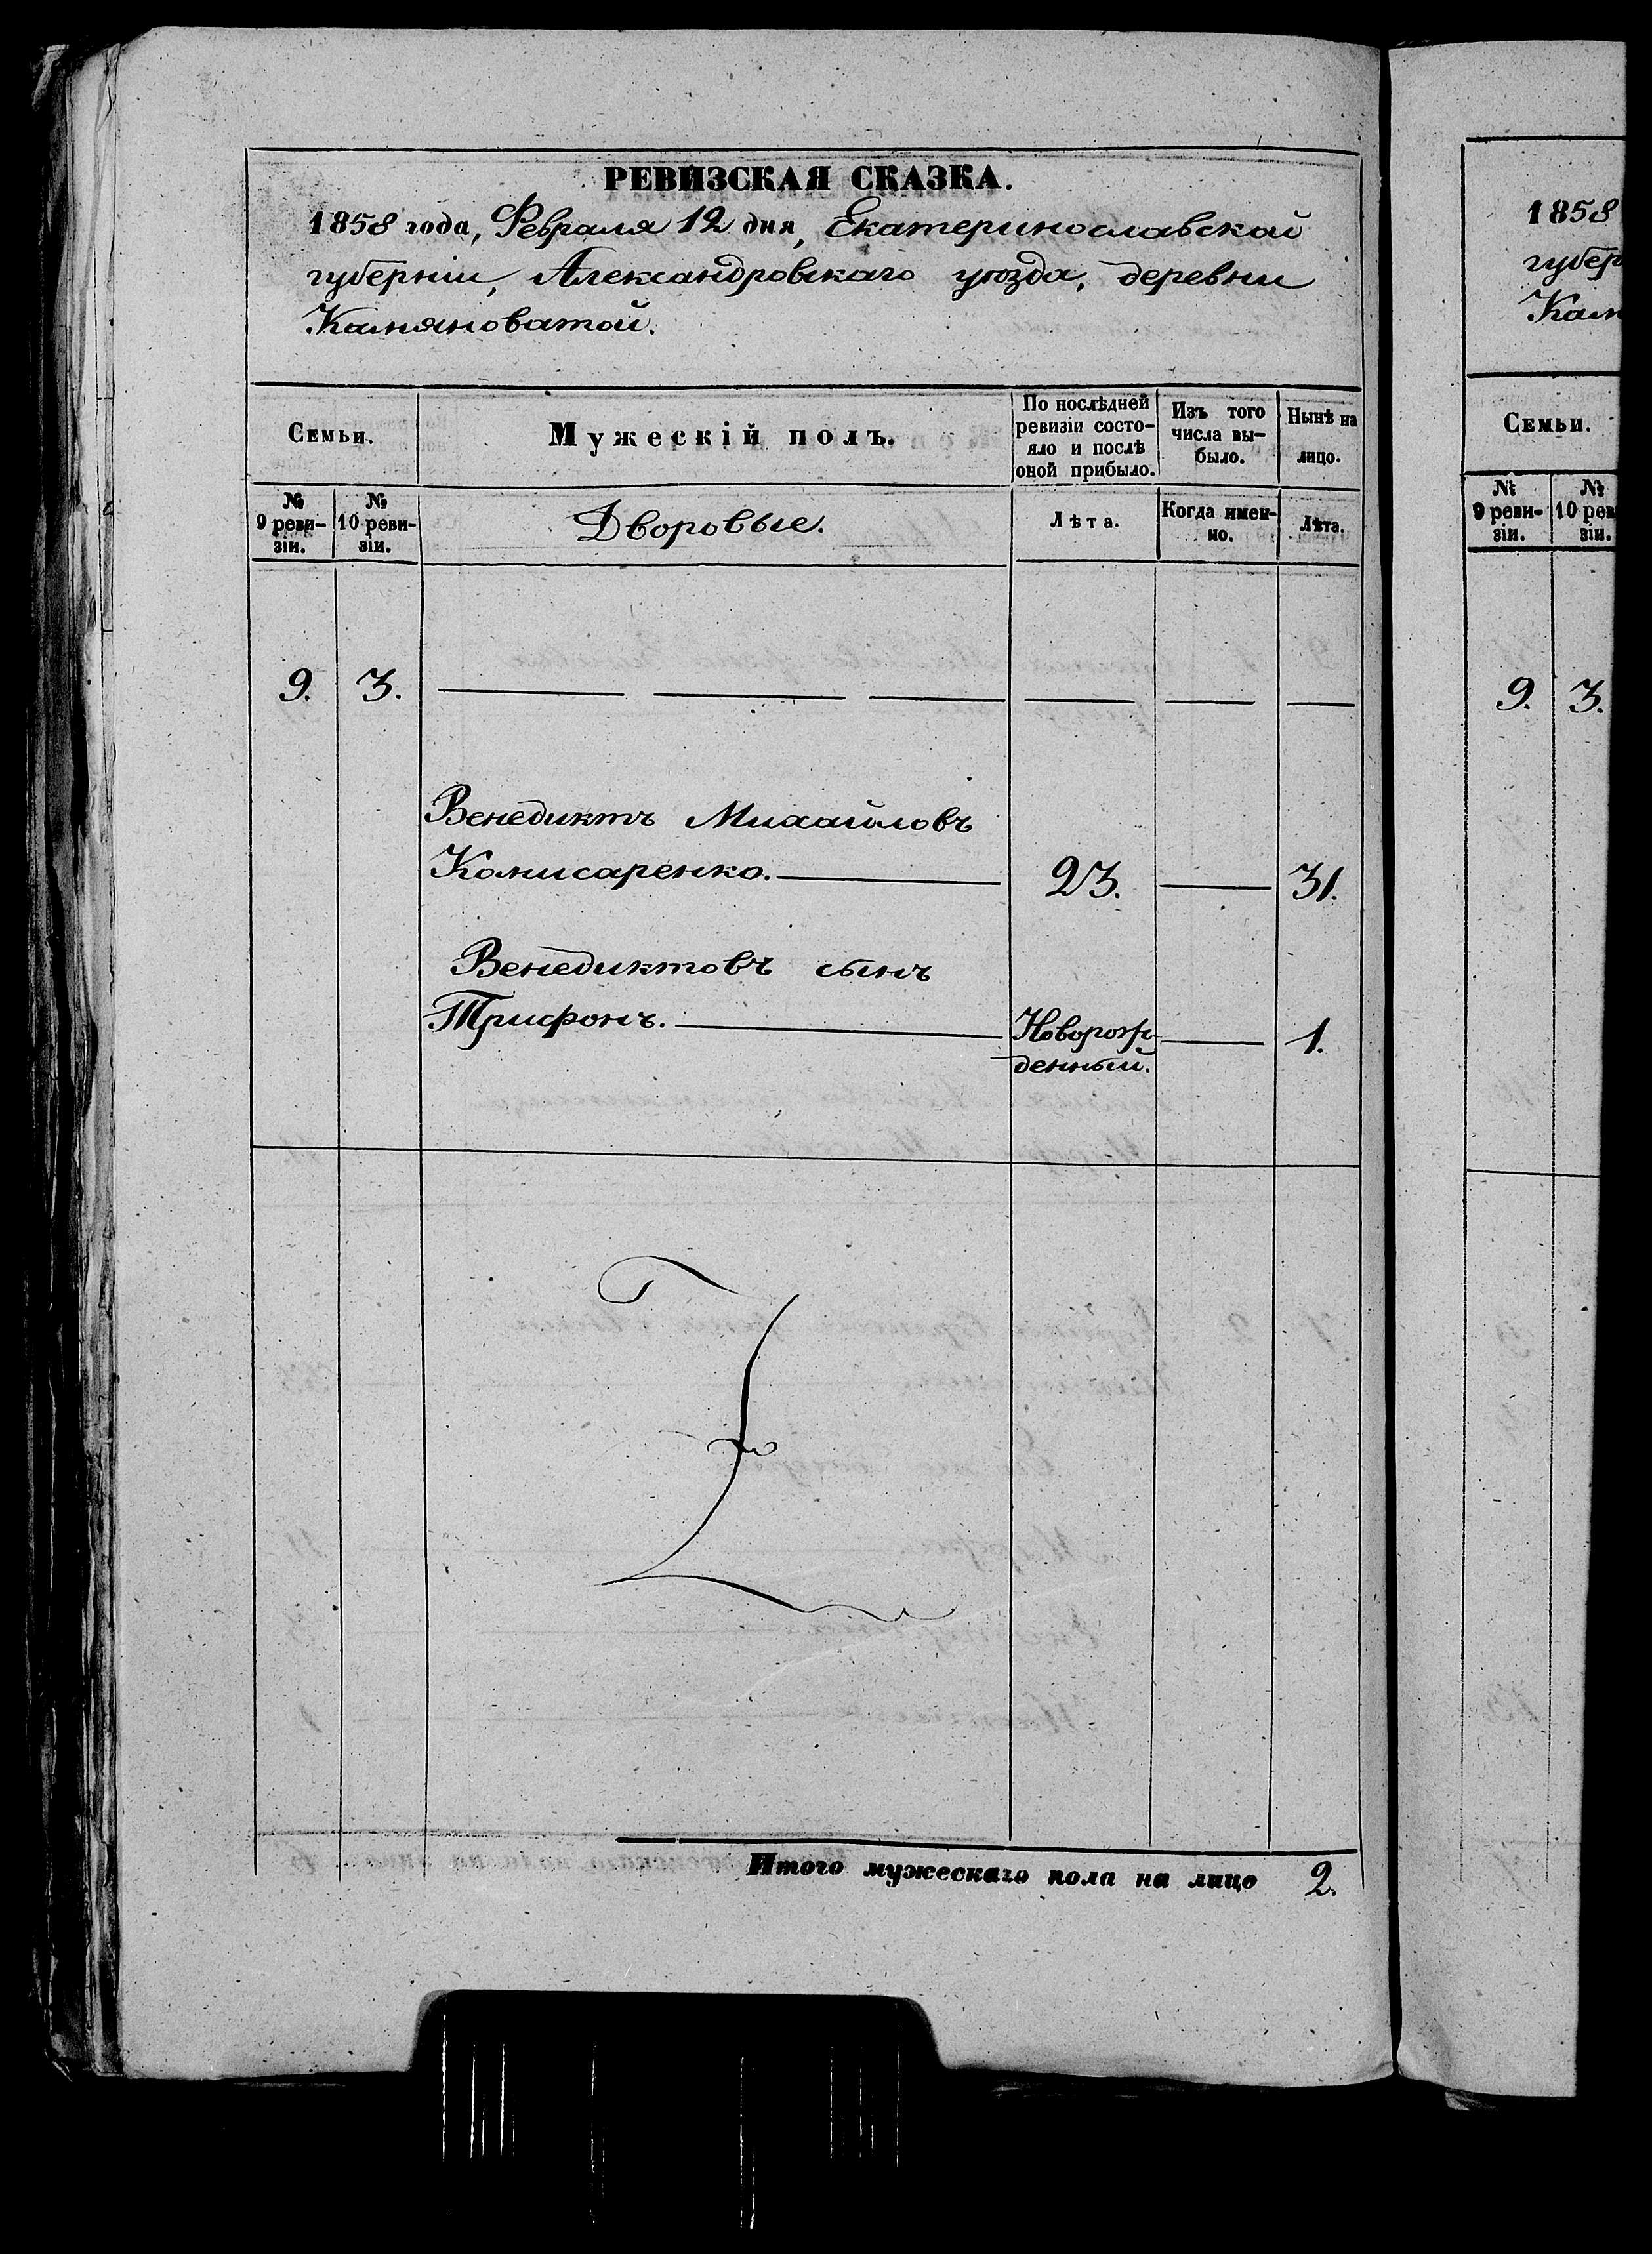 РЕВИЗСКАЯ СКАЗКА.
1858 года, Февраля 12 дня, Екатеринославской
губерніи, Александровскаго уѣзда, деревни
Камяноватой.
Семьи.
Мужескій полъ.
По послѣдней
ревизіи состо-
яло и послѣ
оной прибыло.
Изъ того
числа вы-
было.
Нынѣ на
лицо.
№
9 реви-
зіи.
№
10 реви-
зіи.
Дворовые.
Лѣта.
Когда имен-
но.
Лѣта.
9. 3.
Венедиктъ Михайловъ
Комисаренко. 23. 31.
Венедиктовъ сынъ
Трифонъ. Новорож- 1.
денный.
Итого мужескаго пола на лицо 2.
1858
губер
Кам
Семьи.
№
9 реви-
зіи.
№
10 рев
зіи.
9. 3.